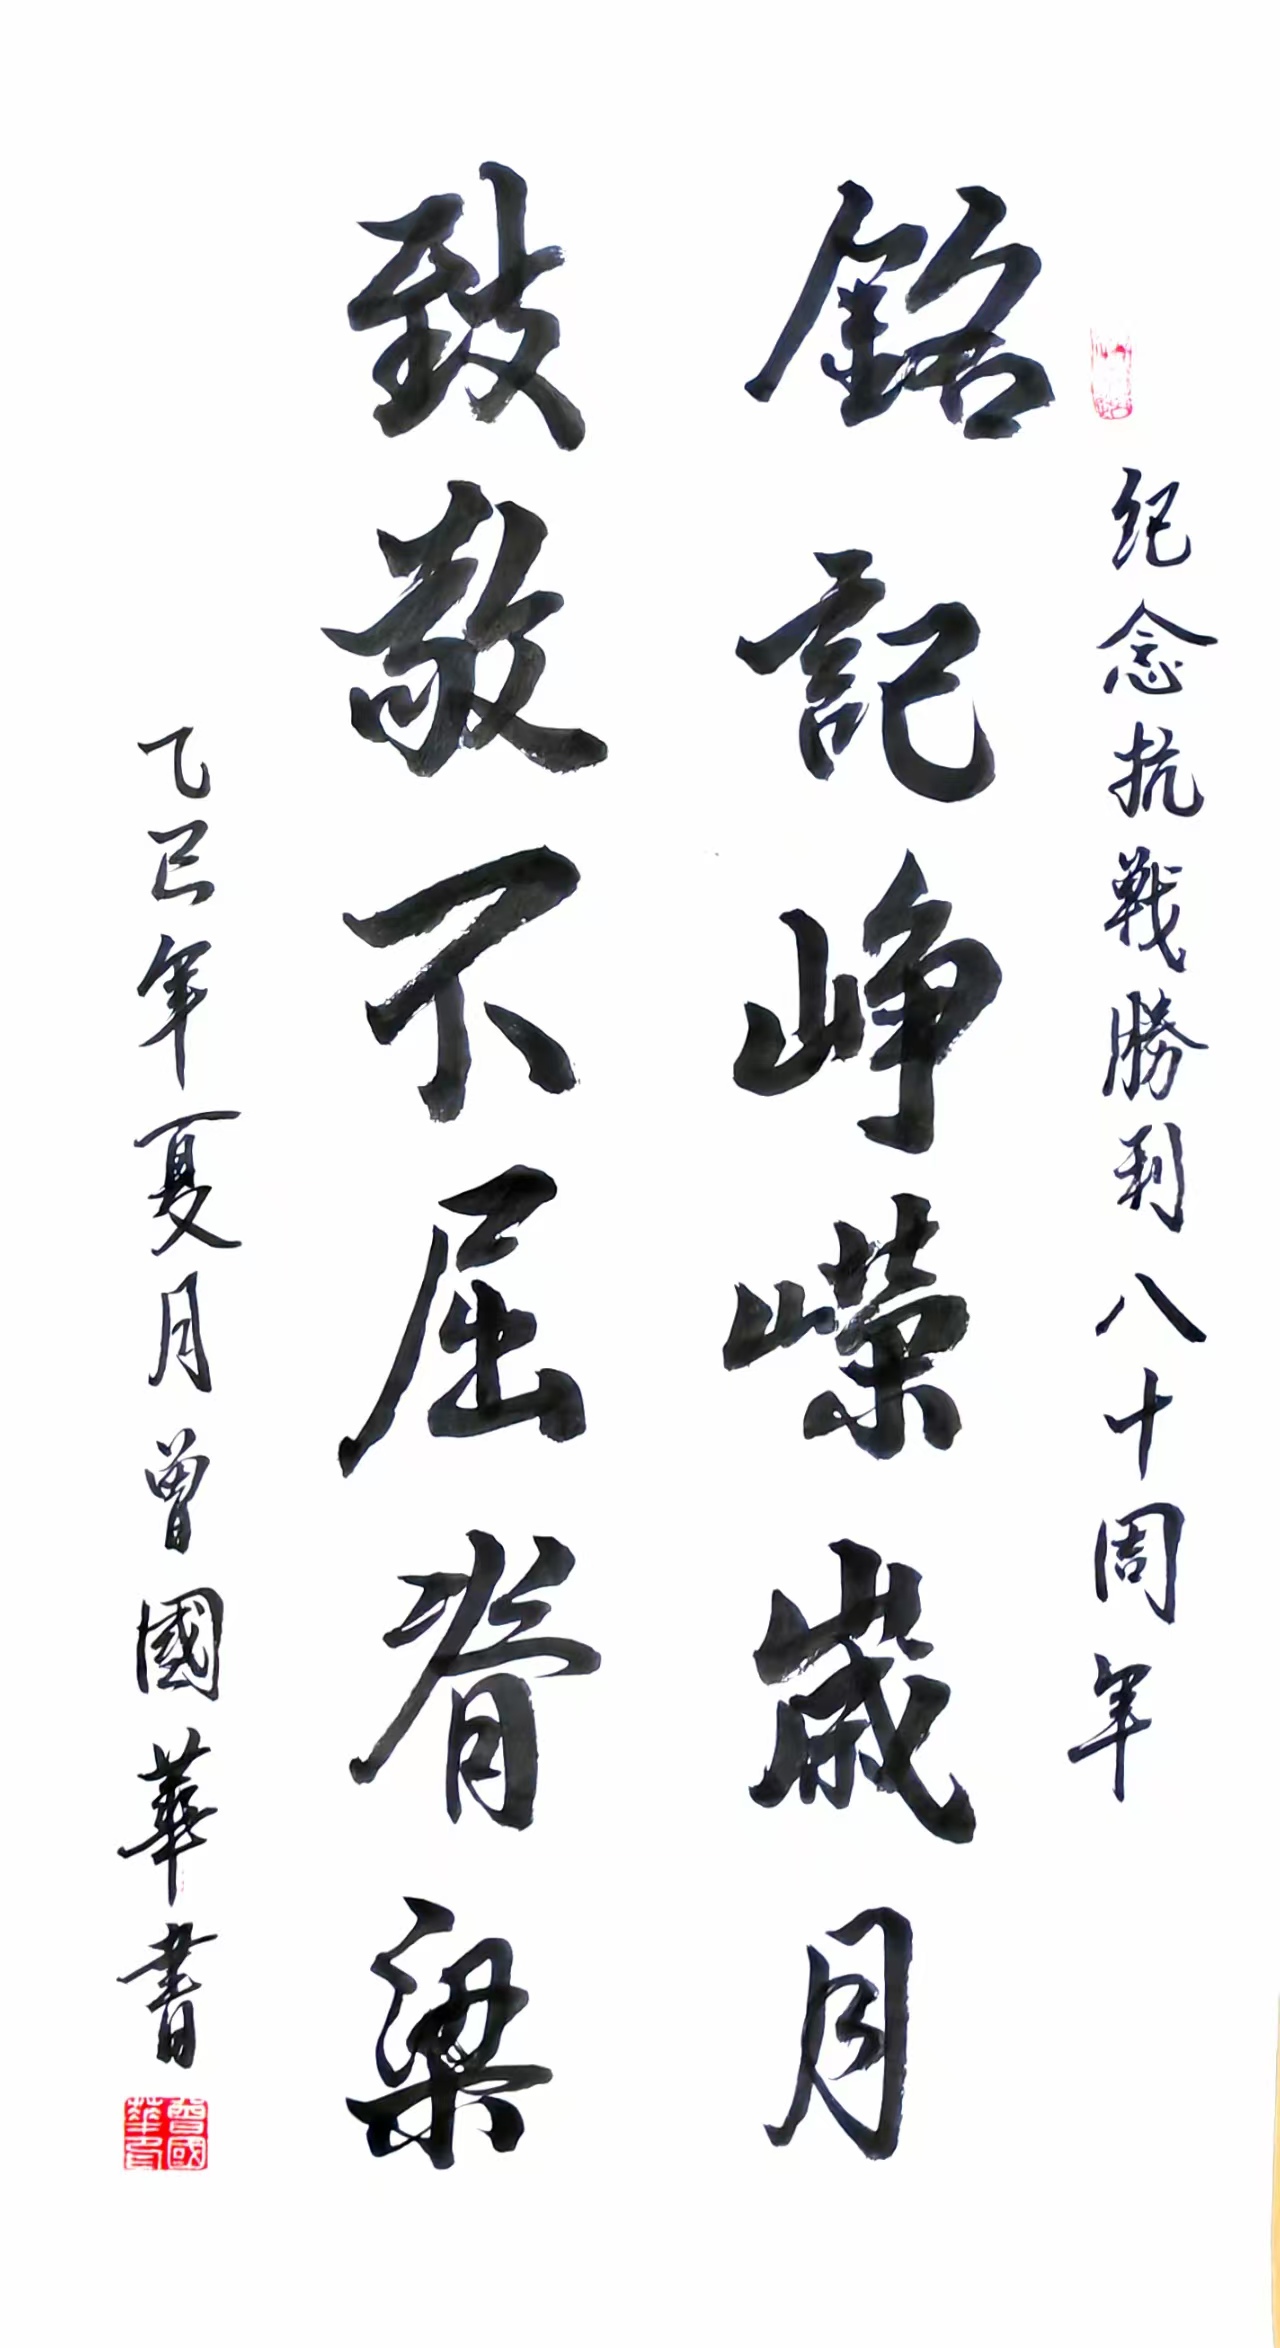 纪念抗戰勝利八十周年
銘記峥嶸歲月
致敬不屈脊梁
乙巳年夏月曾國華書
曾國華印